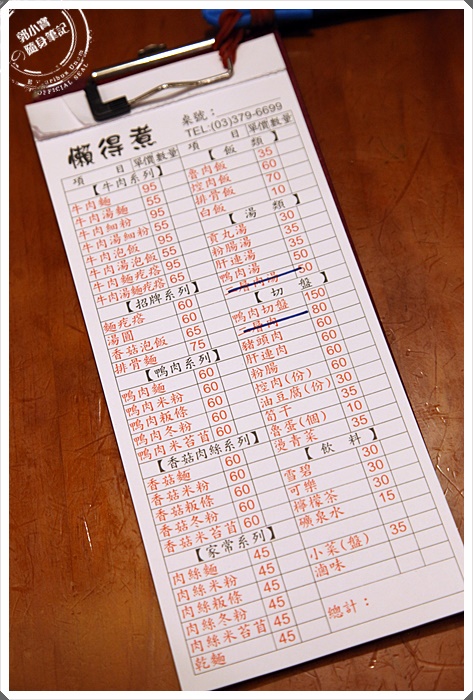 郭小寶
の
隨身筆記
OFFICIAL SEAL
懶得煮
桌號：
TEL:(03)379-6699
項 目 單價 數量
【牛肉系列】
牛肉麵 95
牛肉湯麵 55
牛肉細粉 95
牛肉湯細粉 55
牛肉泡飯 95
牛肉湯泡飯 55
牛肉麵疙瘩 95
牛肉湯麵疙瘩 65
【招牌系列】
麵疙瘩 60
湯圓 60
香菇泡飯 65
排骨麵 75
【鴨肉系列】
鴨肉麵 60
鴨肉米粉 60
鴨肉粄條 60
鴨肉冬粉 60
鴨肉米苔苜 60
【香菇肉絲系列】
香菇麵 60
香菇米粉 60
香菇粄條 60
香菇冬粉 60
香菇米苔苜 60
【家常系列】
肉絲麵 45
肉絲米粉 45
肉絲粄條 45
肉絲冬粉 45
肉絲米苔苜 45
乾麵 45
項 目 單價 數量
【飯 類】
魯肉飯 35
控肉飯 60
排骨飯 70
白飯 10
【湯 類】
貢丸湯 30
粉腸湯 35
肝連湯 35
鴨肉湯 50
二層肉湯 50
【切 盤】
鴨肉切盤 150
二層肉 80
豬頭肉 60
肝連肉 60
粉腸 60
控肉(份)
油豆腐(份)
筍干
魯蛋(個) 10
燙青菜 35
【飲 料】
雪碧 30
可樂 30
檸檬茶 30
礦泉水 15
小菜(盤) 35
滷味
總計：